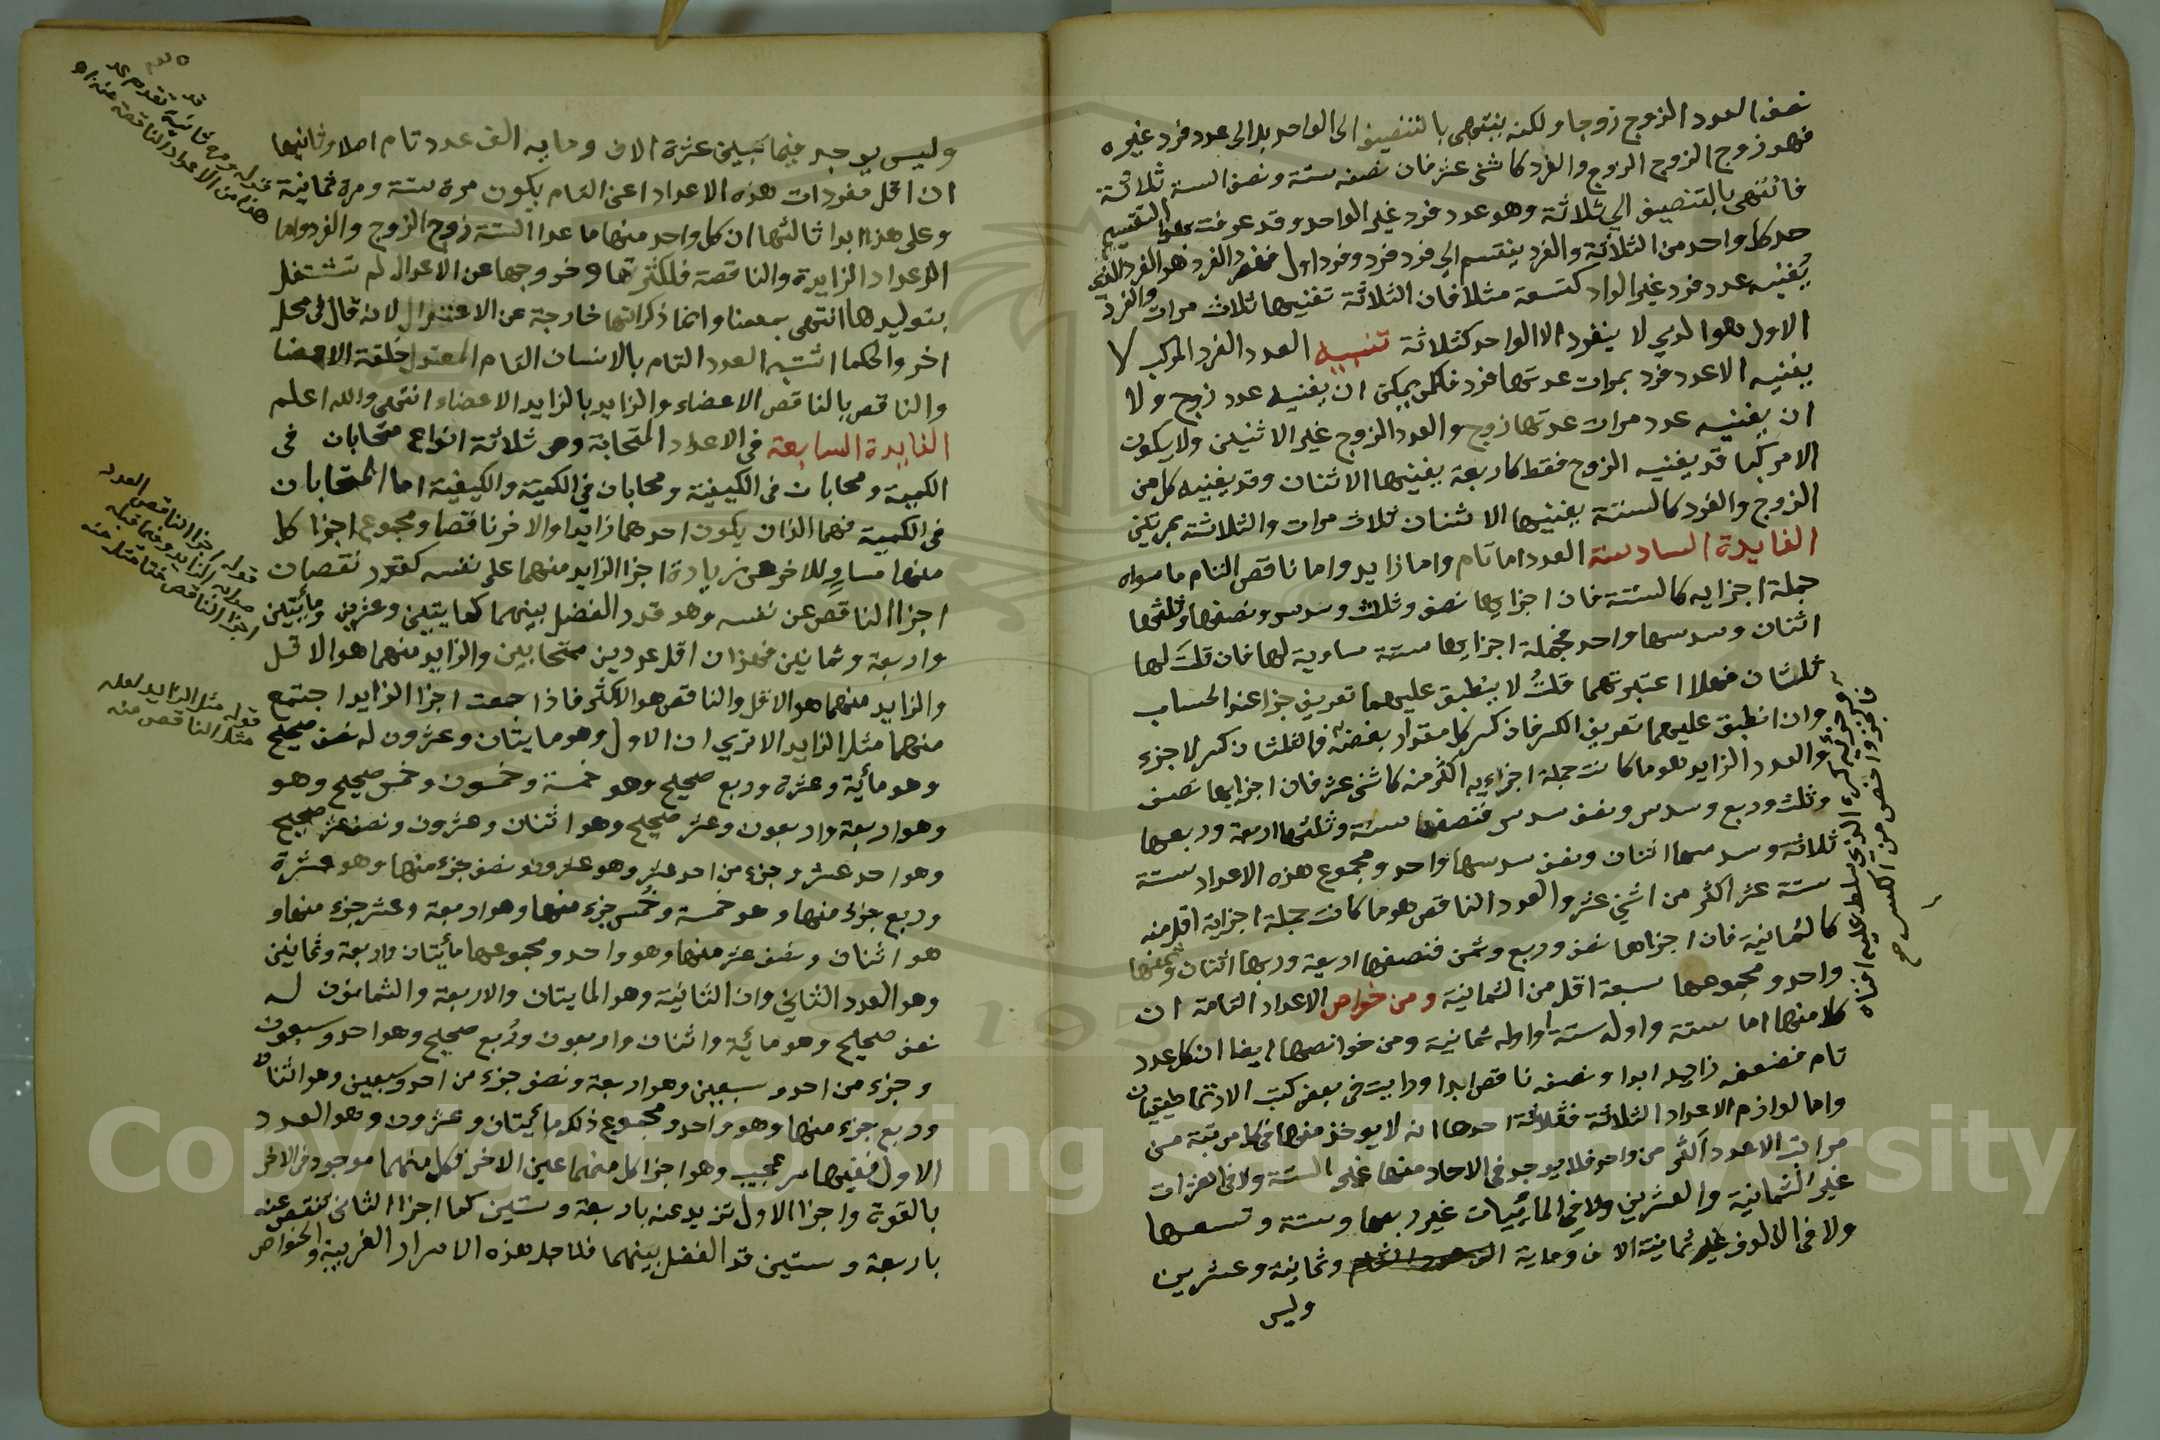 نصف العدد الزوج زوجا ولكنه ينتهى بالتنصيف الى الواحد بل الى عدد فرد غيره
فهو زوج الزوج والفرد كاثنى عشر فان نصفه ستة ونصف الستة ثلاثة
فانتهى بالتنصيف الى ثلاثة وهو عدد فرد غير الواحد وقد عرفت بهذا التقسيم
حد كل واحد من الثلاثة والفرد ينقسم الى فرد فرد وفرد اول ففرد الفرد هو الفرد الذي
يُفنيه عدد فرد غير الواحد كتسعة مثلا فان الثلاثة تفنيها ثلاث مرات والفرد
الاول هو الذي لا ينفرد الا الواحد كثلاثة تنبيه العدد الفرد المركب لا
يفنيه الا عدد فرد بمرات عدتها فرد فلا يمكن ان يفنيه عدد زوج ولا
ان يفنيه عدد مرات عدتها زوج والعدد الزوج غير الاثنين ولا يكون
الا مركبا قد يفنيه الزوج فقط كاربعة يفنيها الاثنان وقد يفنيه كل من
الزوج والفرد كالستة يفنيها الاثنان ثلاث مرات والثلاثة بمرتين
الفايدة السادسة العدد اما تام واما زايد واما ناقص التام ما سواه
جملة اجزايه كالستة فان اجزايها نصف وثلث وسدس ونصفها وثلثها
اثنان وسدسها واحد فجملة اجزايها ستة مساوية لها فان قلت لها
ثلثان فهلا اعتبرتهما قلتُ لا ينطبق عليهما تعريف جزا عند الحساب
وان انطبق عليهما تعريف الكسر فان كسر كل مقدار بعضه فالثلثان كسر لا جزء
والعدد الزايد هو ما كانت جملة اجزايه اكثر منه كاثنى عشر فان اجزايها نصف
وثلث وربع وسدس ونصف سدس فنصفها ستة وثلثها اربعة وربعها
ثلاثة وسدسها اثنان ونصف سدسها واحد ومجموع هذه الاعداد ستة
ستة عشر اكثر من اثني عشر والعدد الناقص هو ما كانت جملة اجزايه اقل منه
كالثمانية فان اجزاها نصف وربع وثمن فنصفها اربعة وربعها اثنان وثمنها
واحد ومجموعها سبعة اقل من الثمانية ومن خواص الاعداد التامة ان
كلا منها اما ستة واوله ستة او اوله ثمانية ومن خواصها ايضا ان كل عدد
تام فضعفه زايد ابدا ونصفه ناقص ابدا ورايت فى بعض كتب الارتماطيقيات
واما لوازم الاعداد الثلاثة فثلاثة احدها انه لا يوخذ منها فى كل مرتبة من
مراتب الاعدد اكثر من واحد فلا يوجد فى الاحاد منها غير الستة ولا فى العشرات
غير الثمانية والعشرين ولا في المأتيات غير اربعها وستة وتسعها
ولا فى الالوف غير ثمانية الاف وماية وثمانية وعشرين
وليس
وليس يوجد فيما بين عشرة الاف وماية الف عدد تام اصلا وثانيها
ان اقل مفردات هذه الاعداد اعنى التام يكون مرة ستة ومرة ثمانية
وعلى هذا ابدا ثالثها ان كل واحد منها ما عدا الستة زوج الزوج والفرد واما
الاعداد الزايدة والناقصة فلكثرتها وخروجها عن الاعتدال لم تشتغل
بتوليدها انتهى بمعناه وانما ذكر انها خارجة عن الاعتدال لانه قال فى محل
اخر والحكما اشبه العدد التام بالانسان التام المعتدل خلقة الاعضا
والناقص بالناقص الاعضاء والزايد بالزايد الاعضاء انتهى والله اعلم
الفايدة السابعة فى الاعداد المتحابة وهى ثلاثة انواع متحابان فى
الكمية ومحابان فى الكيفية ومحابان في الكمية والكيفية اما المتحابان
فى الكمية فهما اللذان يكون احدهما زايدا والاخر ناقصا ومجموع اجزا كل
منهما مساوٍ للاخر هى زيادة اجزا الزايد منهما على نفسه كقدر نقصان
اجزا الناقص عن نفسه وهو قدر الفضل بينهما كمايتين وعشرين ومأيتين
واربعة وثمانين فهذان اقل عددين متحابين والزايد منهما هو الاقل
والزايد منهما هو الاقل والناقص هو الاكثر فاذا جمعت اجزا الزايد اجتمع
منهما مثل الزايد الا تري ان الاول وهو مايتان وعشرون له نصف صحيح
وهو مأية وعشرة وربع صحيح وهو خمسة وخمسون وخمس صحيح وهو
وهو اربعة واربعون وعشر صحيح وهو اثنان وعشرون ونصف عشر صحيح
وهو احد عشر وجزء من احد عشر وهو عشرون ونصف جزء منها وهو عشرة
وربع جزء منها وهو خمسة وخُمس جزء منها وهو اربعة وعشر جزء منها و
هو اثنان ونصف عشر منها وهو واحد ومجموعها مأيتان واربعة وثمانين
وهو العدد الثاني وان الثانية وهو المايتان والاربعة والثمانون له
نصف صحيح وهو مائة واثنان واربعون ورُبع صحيح وهو احد وسبعون
وجزء من احد وسبعين وهو اربعة ونصف جزء من احد وسبعين وهو اثنان
وربع جزء منها وهو واحد ومجموع ذلك مأيتان وعشرون وهو العدد
الاول ففيها سر عجيب وهو اجزا كل منهما عين الاخر فكل منهما موجود فى الاخر
بالقوة واجزا الاول تزيد عنه باربعة وستين كما اجزا الثانى تنقص عنه
باربعة وستين قد الفضل بينهما فلاجل هذه الاسرار الغريبة والخواص
قوله ومرة ثمانية قد تقدم
هذه من الاعداد الناقصة
قوله اجزا الناقص العدد
صوابه الزايد وفيما قبله
اجزا الناقص
قوله مثل الزايد لعله
مثل الناقص منه
Copyright © King Saud University
1957